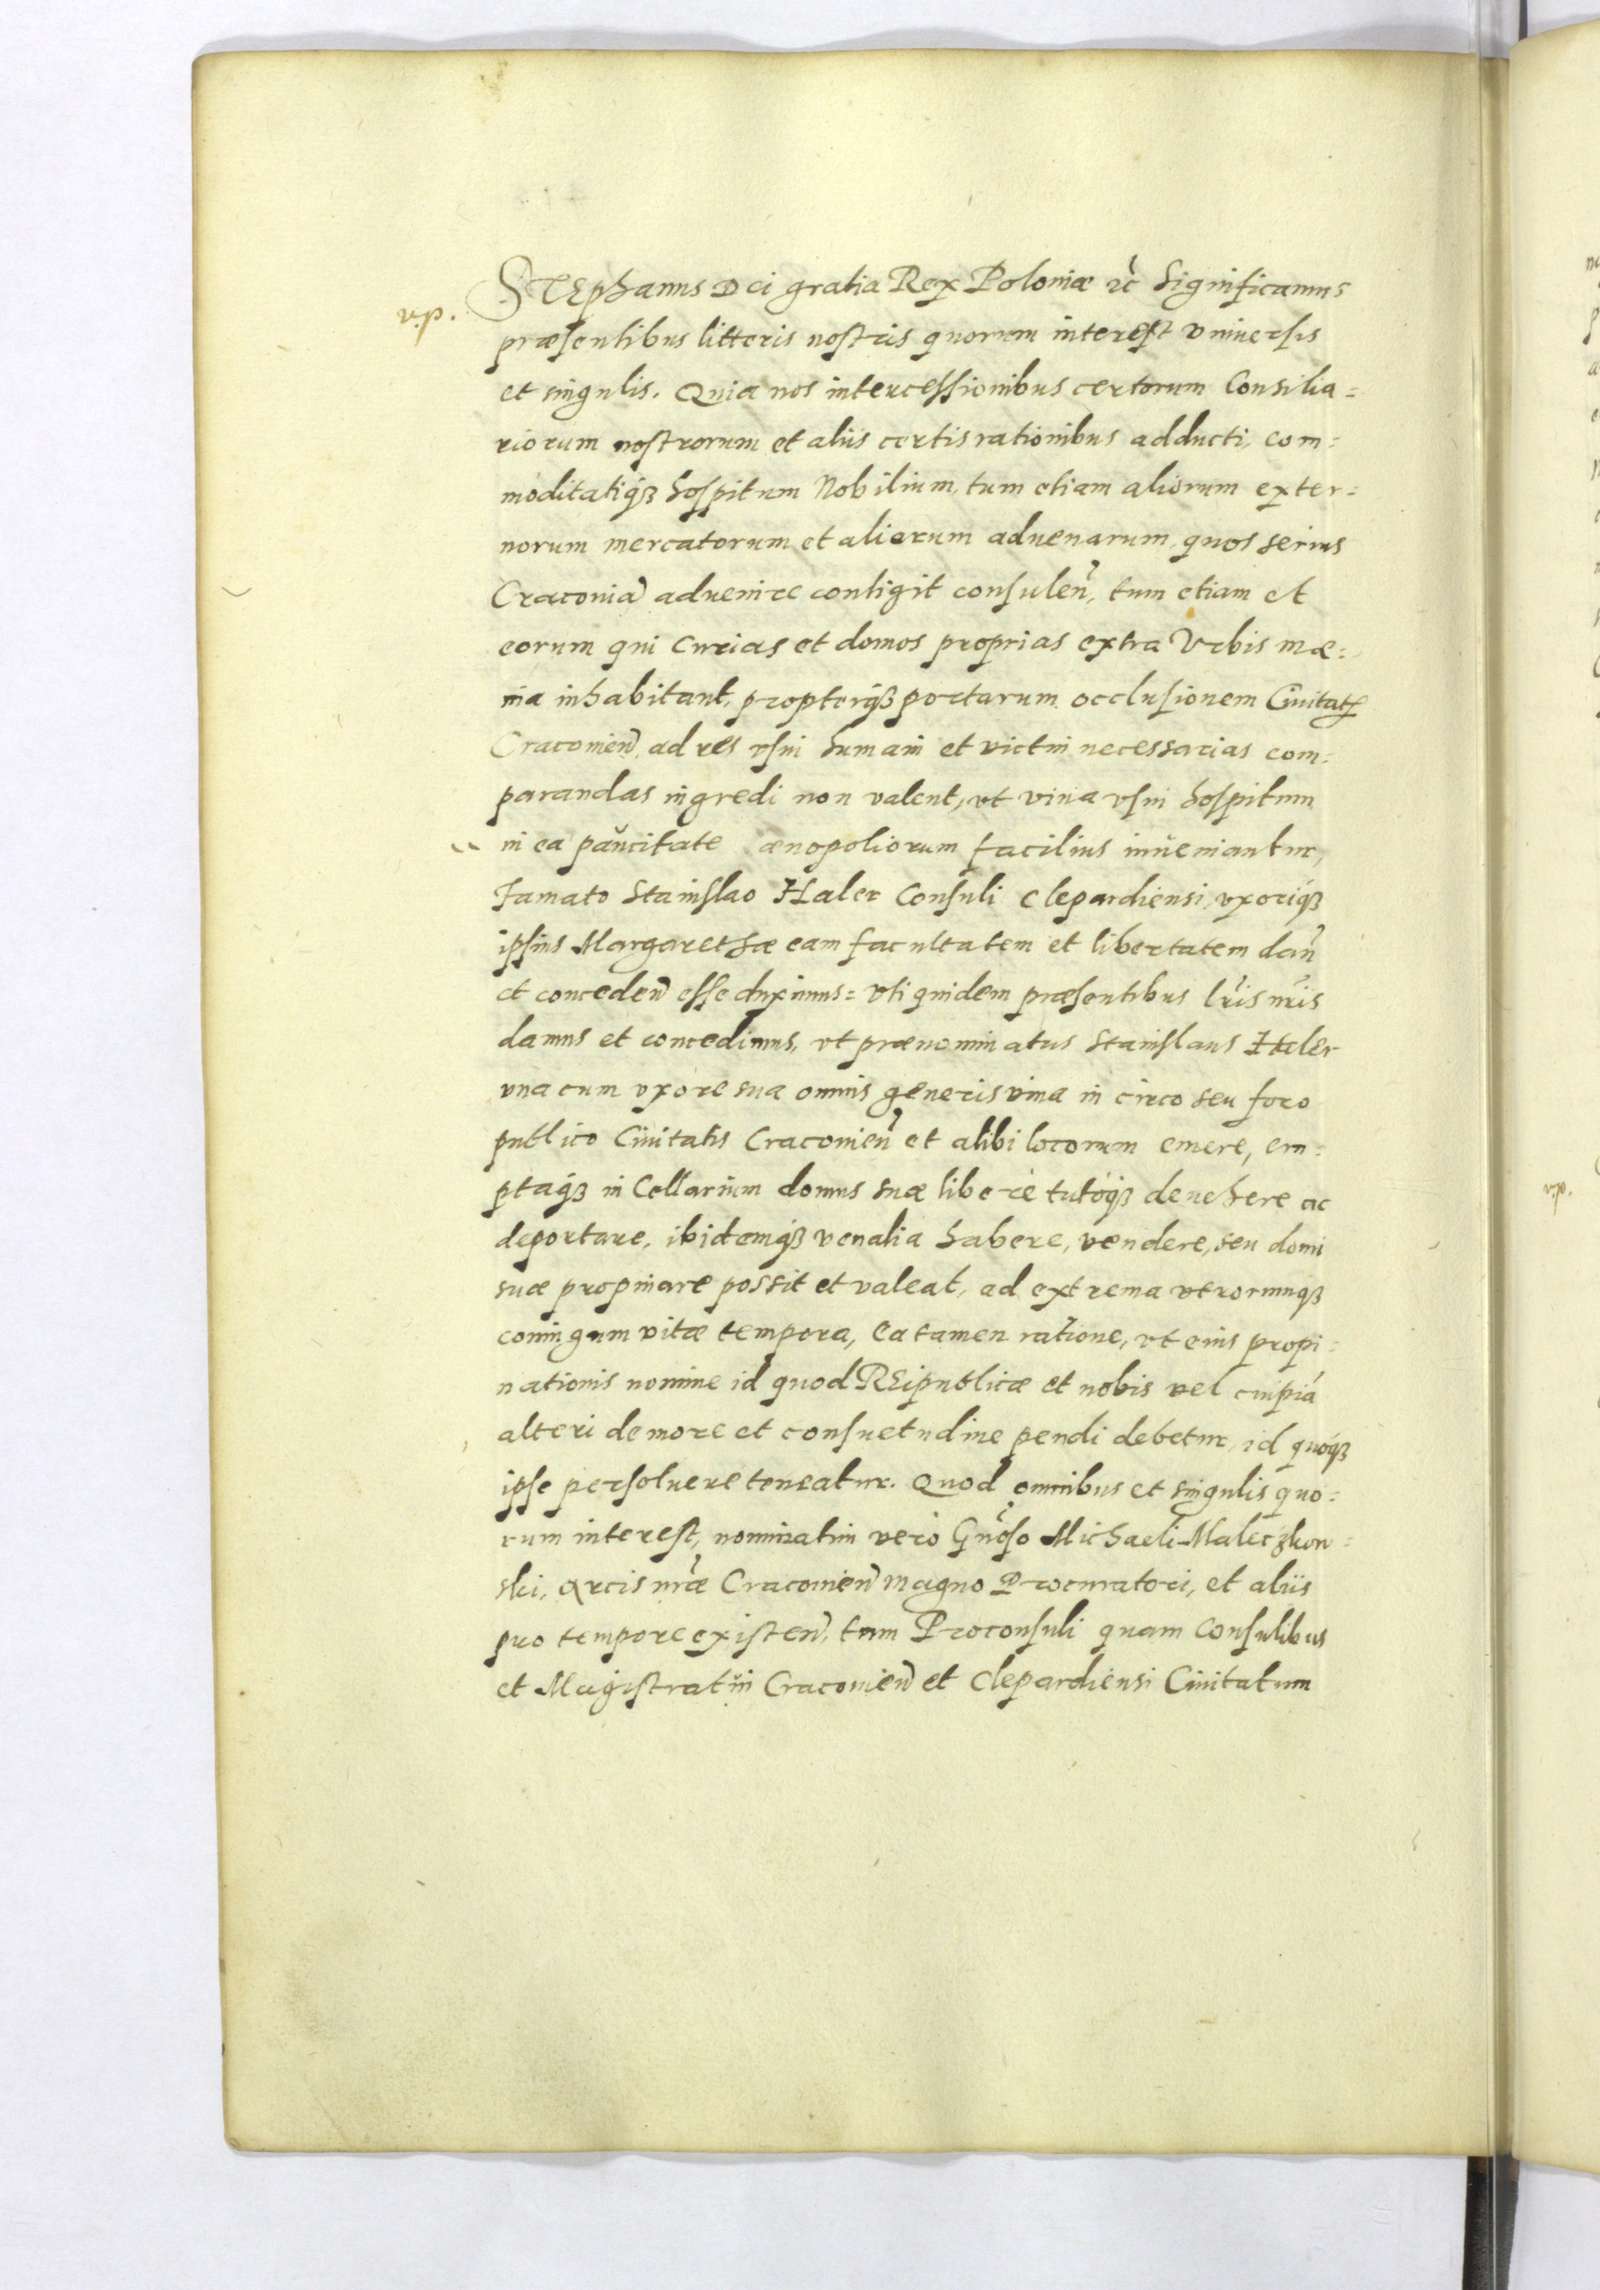 STEPhanus Dei gratia Rex Poloniæ etc̃ Significamus
v.p.
præsentibus litteris nostris quorum interest vniuersis
et singulis. Quia nos intercessionibus certorum Consilia=
riorum nostrorum et aliis certis rationibus adducti, com=
moditatiqȝ hospitum Nobilium, tum etiam aliorum exter=
norum mercatorum et aliorum aduenarum, quos serius
Cracouiã aduenire contigit consuleñ, tum etiam et
eorum qui Curias et domos proprias extra Vrbis mæ=
nia inhabitant, propterqȝ portarum occlusionem Ciuitatis
Cracouieñ, ad res vsui humain et victui necessarias com=
parandas ingredi non valent, vt vina vsui hospitum
in ea paucitate ænopoliorum facilius inueniantur,
famato Stanislao Haler Consuli Clepardiensi, vxoriqȝ
ipsius Margarethæ eam facultatem et libertatem dañ
et concedeñ esse duximus= vti quidem præsentibus lr̃is nr̃is
damus et concedimus, vt prænominatus Stanislaus Haler
vna cum vxore sua omnis generis vina in circo seu foro
publico Ciuitatis Cracouieñ et alibi locorum emere, em=
ptaqȝ in Cellarium domus suæ liberè tutoqȝ deuehere ac
deportare, ibidemqȝ venalia habere, vendere, seu domi
suæ propinare possit et valeat, ad extrema vtrorumqȝ
coniugum vitæ tempora, Ea tamen ratione, vt eius propi=
nationis nomine id quod REipublicæ et nobis vel cuipiã
alteri de more et consuetudine pendi debetur, id quoqȝ
ipse persoluere teneatur. Quod omnibus et singulis quo=
rum interest, nominatim verò Gñoso Michaeli Maleczkow=
ski, Arcis nr̃æ Cracouieñ magno Procuratori, et aliis
pro tempore existeñ, tum Proconsuli quam Consulibus
et Magistratui Cracouieñ et Clepardiensi Ciuitatum